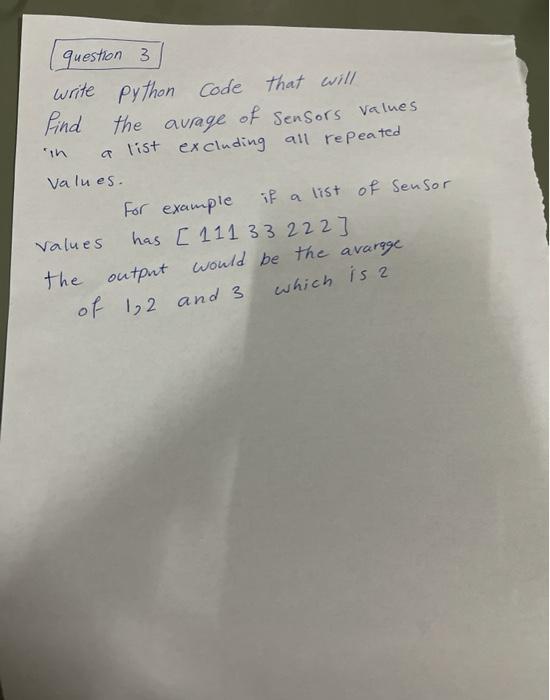 question 3
write python Code that will
find the avrage of Sensors values
in a list excluding all repeated
values.
For example if a list of Sensor
values has [ 111 33 222 ]
the output would be the avarage
of 1,2 and 3 which is 2